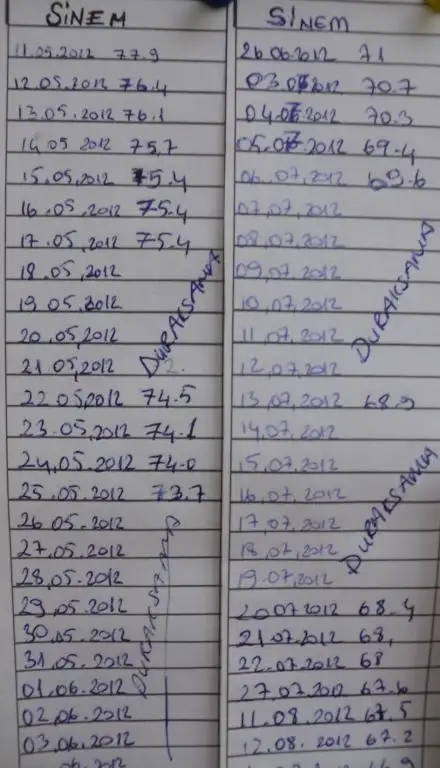 SİNEM
11.05.2012 77.9
12.05.2012 76.4
13.05.2012 76.1
14 05 2012 75,7
15.05.2012 75.4
16.05.2012 75.4
17.05.2012 75.4
18.05.2012
19 05.2012
20.05.2012
21 05,2012
DURAKSAMA
22 05,2012 74.5
23.05.2012 74.1
24,05.2012 74.0
25.05.2012 73.7
26 05-2012
27,05.2012
28,05.2012
29,05.2012
30,05.2012
31,05.2012
01.06.2012
02.06.2012
03.06.2012
DURAKSAMA
SİNEM
26 06 2012 71
03.07 2012 70.7
04.07.2012 70.3
05.07.2012 69.4
06.07.2012 69.6
07,07,2012
08,07,2012
09,07,2012
10,07,2012
11 07.2012
12.07.2012
DURAKSAMA
13 07,2012 68.9
14,07.2012
15,07.2012
16.07.2012
17 07.2012
18.07,2012
19.07,2012
DURAKSAMA
20 07 2012 68.4
21 07.2012 68,
22.07.2012 68
27,07.2012 67.6
11.08.2012 67.5
12.08.2012 67.2